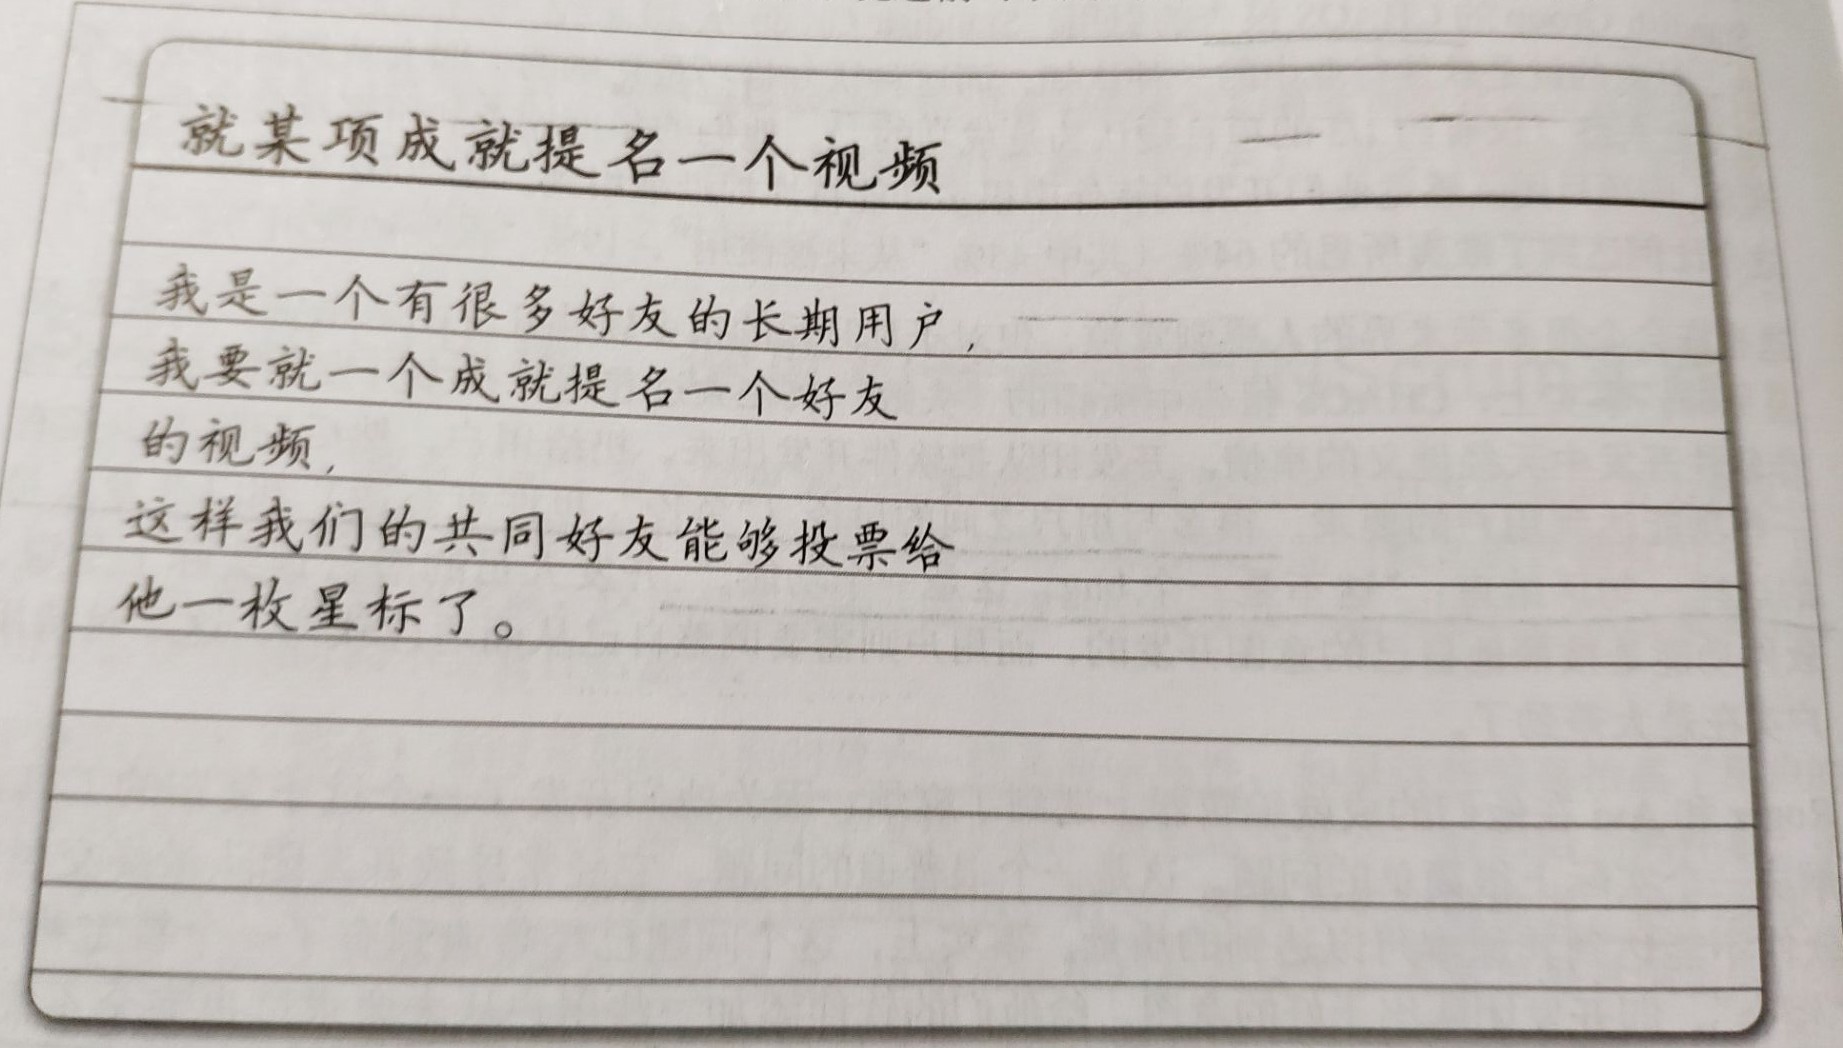 就某项成就提名一个视频
我是一个有很多好友的长期用户,
我要就一个成就提名一个好友
的视频,
这样我们的共同好友能够投票给
他一枚星标了。